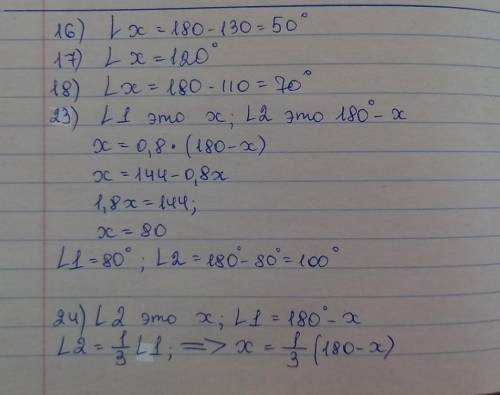 16) ∠x = 180 - 130 = 50°
17) ∠x = 120°
18) ∠x = 180 - 110 = 70°
23) ∠1 это x; ∠2 это 180° - x
x = 0,8 • (180 - x)
x = 144 - 0,8x
1,8x = 144;
x = 80
∠1 = 80°; ∠2 = 180° - 80° = 100°
24) ∠2 это x; ∠1 = 180° - x
∠2 = 1/3 ∠1; => x = 1/3 (180 - x)